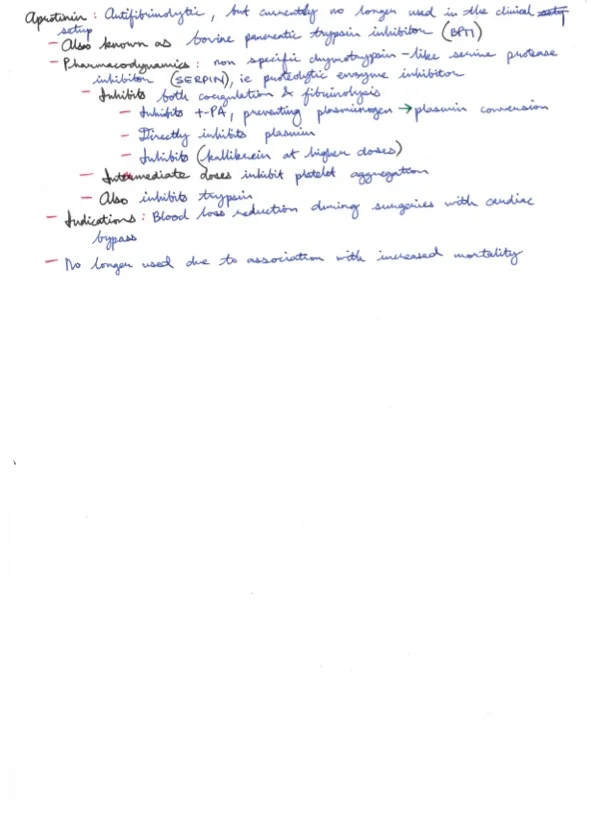 Aprotinin : Antifibrinolytic, but currently no longer used in the clinical setup
setup
- Also known as bovine pancreatic trypsin inhibitor (BPTI)
- Pharmacodynamics : non specific chymotrypsin-like serine protease
inhibitor (SERPIN), ie proteolytic enzyme inhibitor
- Inhibits both coagulation & fibrinolysis
- Inhibits t-PA, preventing plasminogen → plasmin conversion
- Directly inhibits plasmin
- Inhibits (kallikrein at higher doses)
- Intermediate doses inhibit platelet aggregation
- Also inhibits trypsin
- Indications : Blood loss reduction during surgeries with cardiac
bypass
- No longer used due to association with increased mortality